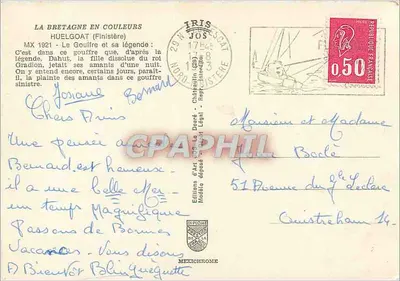 LA BRETAGNE EN COULEURS
HUELGOAT (Finistère)
MX 1921 - Le Gouffre et sa légende :
C'est dans ce gouffre que, d'après la
légende, Dahut, la fille dissolue du roi
Gradlon, jetait ses amants d'une nuit.
On y entend encore, certains jours, paraît-
il, la plainte des amants dans ce gouffre
sinistre.
Josiane Bernard
Chers Amis
Une pensée
Bernard est heureux
il a une belle Mer
un temps Magnifique
Passons de Bonnes
Vacances Vous disons
A Bientôt
IRIS
Editions d'Art
Modèle déposé
MEXICHROME
29 N
17
NORD FINISTERE
POSTES
REPUBLIQUE FRANCAISE
0,50
CPAPHIL
Monsieur et Madame
51 Avenue du Gl Leclerc
Ouistreham 14.